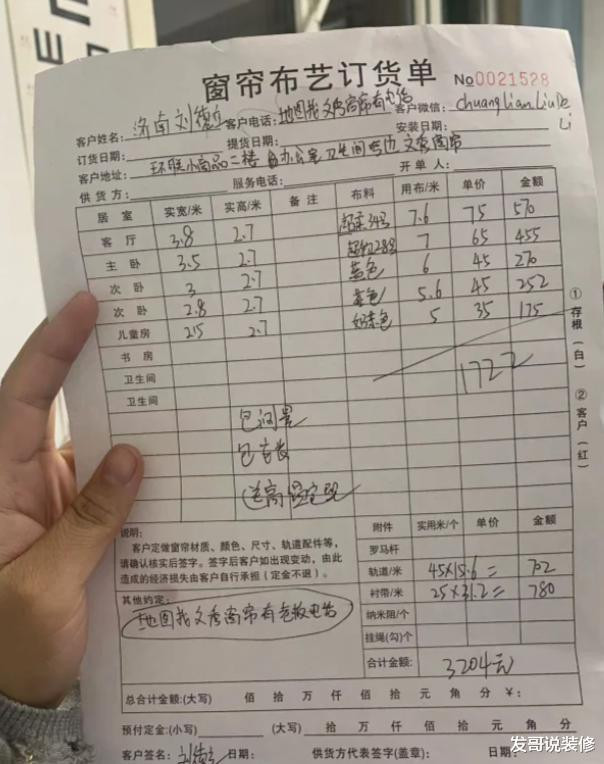 窗帘布艺订货单 No 0021528
客户姓名: 济南刘德立 客户电话: 地图找文秀窗帘有电话 客户微信: chuangLianLiuDeLi
订货日期: 提货日期: 安装日期:
客户地址: 环联小商品二楼 办公室卫生间旁边 文秀窗帘
供货方: 服务电话: 开单人:
居室 实宽/米 实高/米 备注 布料 用布/米 单价 金额
客厅 3.8 2.7 7.6 75 570
主卧 3.5 2.7 7 65 455
次卧 3 2.7 蓝色 6 45 270
次卧 2.8 2.7 5.6 45 252
儿童房 2.5 2.7 5 35 175
书房
卫生间 1722
卫生间
包测量
包安装
送高温定型
①存根(白) ②客户(红)
说明:
客户定做窗帘材质、颜色、尺寸、轨道配件等,
请确认核实后签字。签字后客户如出现变动,由此
造成的经济损失由客户自行承担(定金不退)。
其他约定:
地图找文秀窗帘有老板电话
附件 实用米/个 单价 金额
罗马杆
轨道/米 45×15.6= 702
衬带/米 25×31.2= 780
纳米阻/个
挂绳(勾)个
合计金额: 3204元
总合计金额:(大写) 佰 拾 万 仟 佰 拾 元 角 分 ¥:
预付定金:(小写) (大写) 拾 万 仟 佰 拾 元 角 分
客户签名: 刘德立 日期: 供货方代表签字(盖章): 日期:
发哥说装修